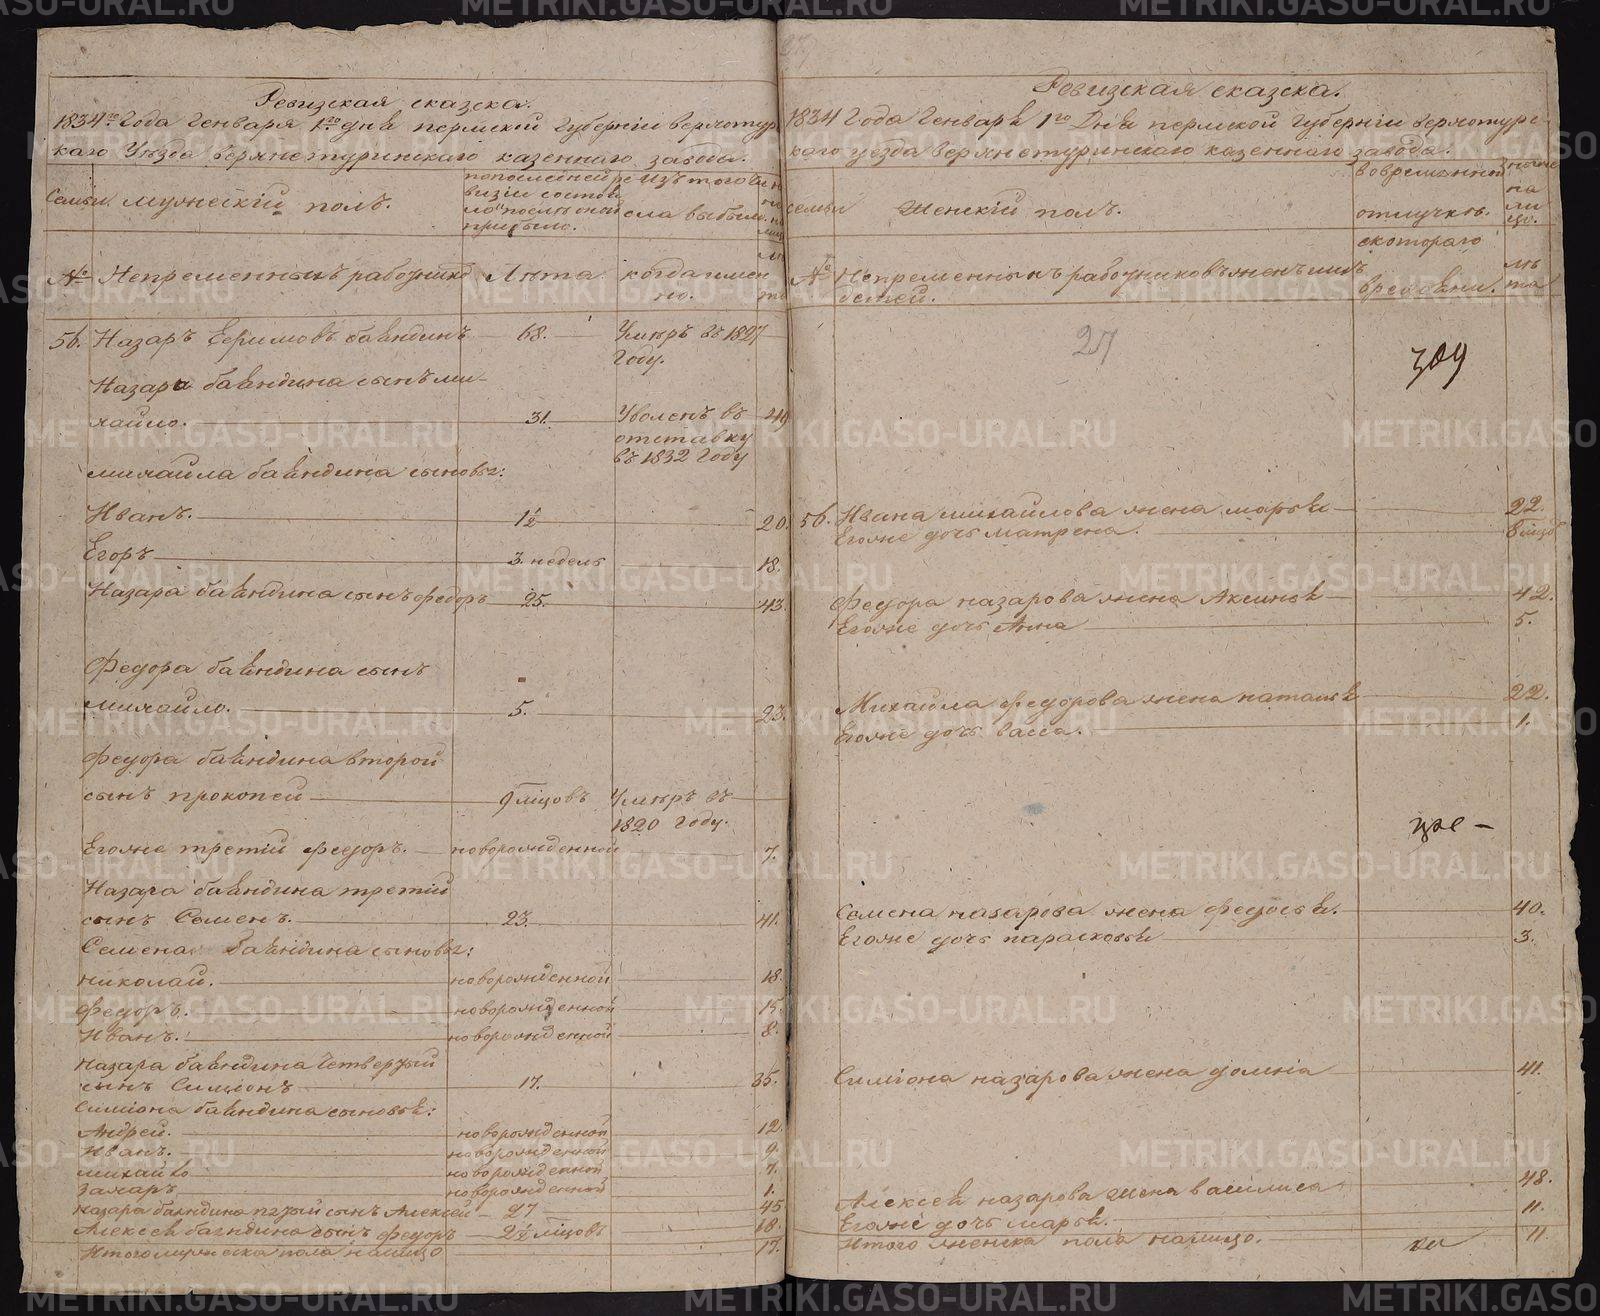 Ревизская сказка.
1834го Года Генваря 1го дня пермской Губерніи верхотур
скаго Уезда верхнетуринскаго казеннаго завода.
Семьи мужескій полъ.
по последней ре
визіи состоя
ло и после оной
прибыло.
изъ того чи
сла выбыло.
№ Непременныхъ работник
Лета
когда имен
но.
56. Назаръ Ефимовъ баяндинъ 68. Умеръ въ 1827
Году.
Назара баяндина сынъ ми
хайло. 31. Уволенъ въ 49
отставку
въ 1832 Году
михайла баяндина сыновья:
Иванъ. 1½ 20.
Егоръ 3 недель 18.
Назара баяндина сынъ федоръ 25. 43.
Федора баяндина сынъ
михайло. 5. 23.
Федора баяндина второй
сынъ прокопей 9 месцовъ Умеръ въ
1820 Году.
Егоже третій федоръ. новорожденной 7.
Назара баяндина третій
сынъ Семенъ. 23. 41.
Семена баяндина сыновья:
николай. новорожденной 18.
федоръ. новорожденной 15.
Иванъ. новорожденной 8.
Назара баяндина четвертый
сынъ Симіонъ 17. 35.
Симіона баяндина сыновья:
Андрей. новорожденной 12.
Иванъ. новорожденной 9.
михайло новорожденной 7.
Захаръ новорожденной 1.
Назара баяндина пятый сынъ Алексей 27 45
Алексея баяндина сынъ федоръ 2½ месцовъ 18.
Итого мужеска пола налицо 17.
27
Ревизская сказка.
1834 Года Генваря 1го Дня пермской Губерніи верхотурс
каго уезда верхнетуринскаго казеннаго завода.
семьи Женскій полъ.
во временной
отлучке.
ныне
на
ли
цо.
№ Непременныхъ работниковъ жен
детей.
с котораго
времени.
ле
та
27
309
56. Ивана михайлова жена марья 22.
Егоже дочь матрена. 8 месцо
Федора назарова жена Аксинья 42.
Егоже дочь Анна 5.
Михайла федорова жена наталья 22.
Егоже дочь васса. 1.
Семена назарова жена федосья. 40.
Егоже дочь парасковья 3.
Симіона назарова жена домніа 41.
Алексея назарова жена василиса 48.
Егоже дочь марья. 11.
Итого женска пола налицо. 11
METRIKI.GASO-URAL.RU